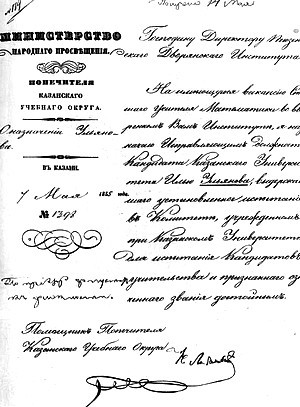 Получено 14 Мая
МИНИСТЕРСТВО
НАРОДНАГО ПРОСВѢЩЕНІЯ.
ПОПЕЧИТЕЛЯ
КАЗАНСКАГО
УЧЕБНАГО ОКРУГА.
О назначеніи Ульяно-
ва.
ВЪ КАЗАНИ.
7 Мая 1855 года.
№ 1398
Господину Директору Пензен
скаго Дворянскаго Института.
На имѣющуюся вакансію
шаго учителя Математики во
ренномъ Вамъ Институтѣ, я
должность
Кандидата Казанскаго Универси
тета Илью Ульянова, выдержав
шаго установленное испытаніе
въ Комитетѣ, учрежденномъ
при Казанскомъ Университетѣ
для испытанія Кандидатовъ
учительства и признаннаго
ченнаго званія достойнымъ.
Помощникъ Попечителя
Казанскаго Учебнаго Округа